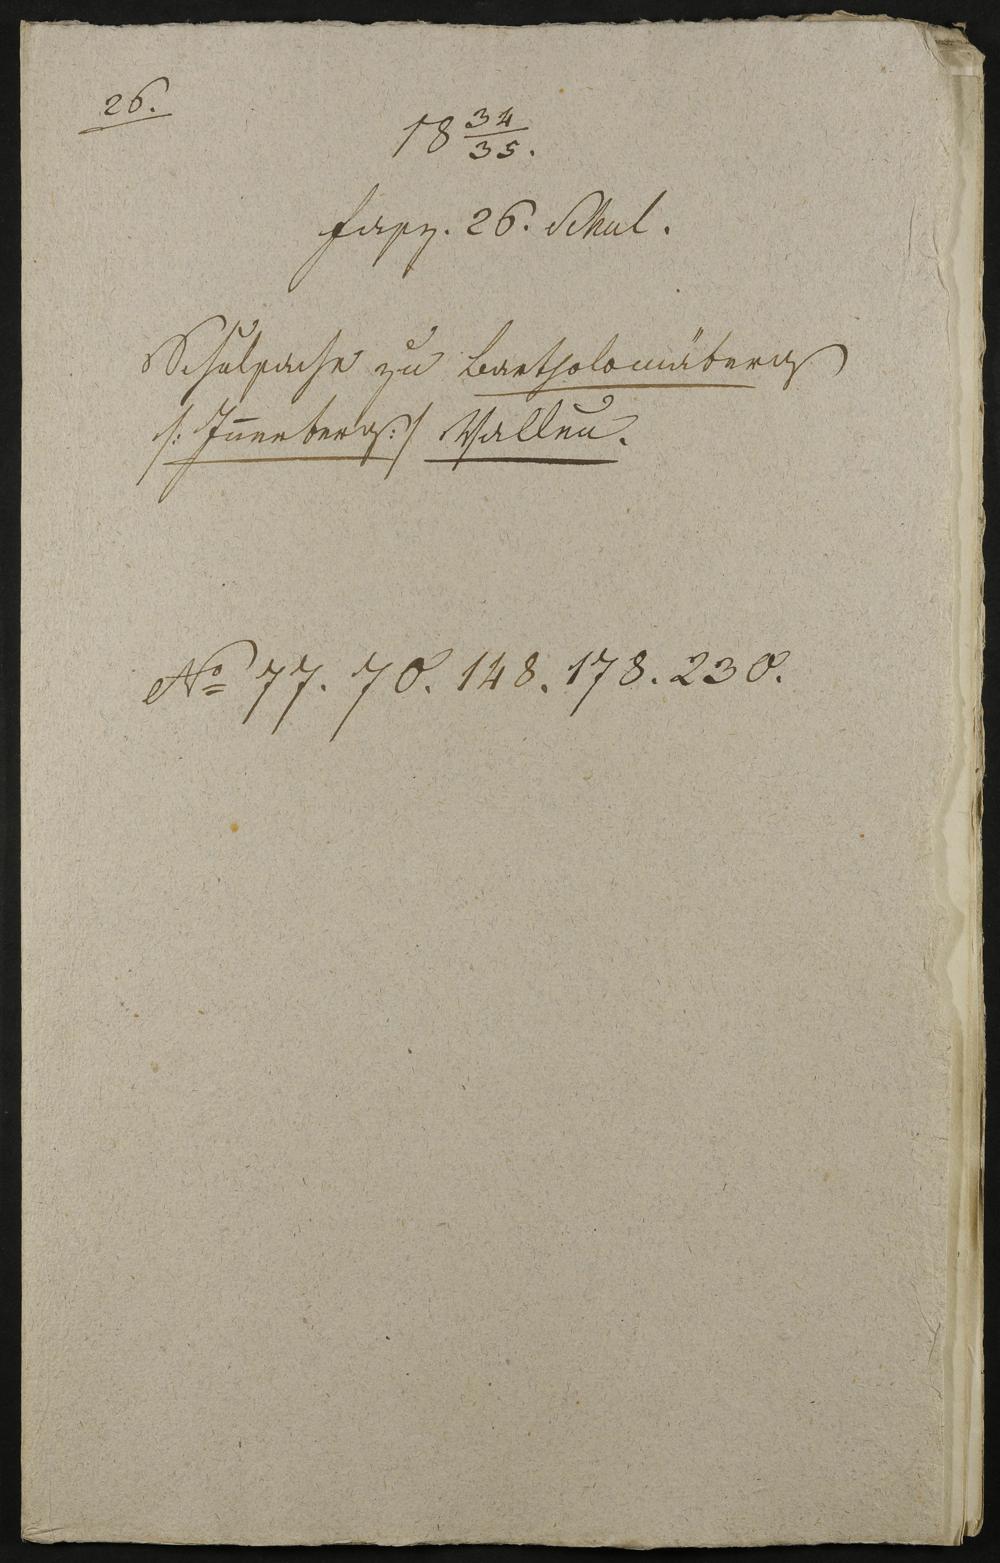 26.
18 34/35.
Fasz. 26. Schul.
Schulsache zu Bartholomäberg
/: Innerberg :/ Walleu.
No 77. 70. 148. 178. 230.